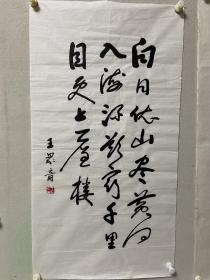 白日依山尽黄河
入海流欲穷千里
目更上一层楼
王